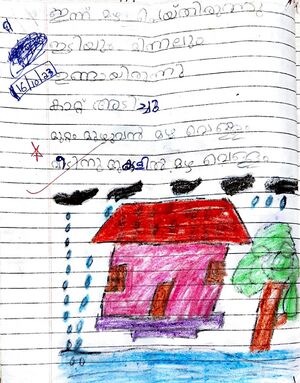 ഇന്ന് മഴ പെയ്തിരുന്നു
ഇടിയും മിന്നലും
16/10/23
ഉണ്ടായിരുന്നു
കാറ്റ് അടിച്ചു
മുറ്റം മുഴുവൻ മഴ വെള്ളം
മഴ വെള്ളം